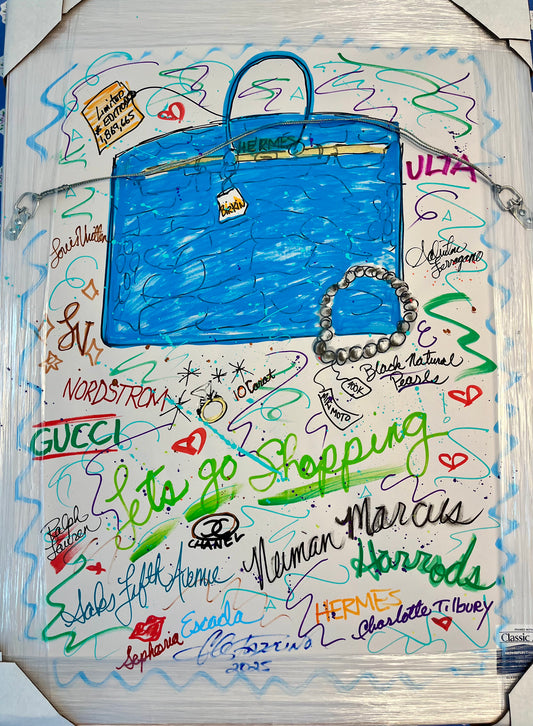 Limited
EDITION
1,869,665
HERMES
BIRKIN
ULTA
Louis Vuitton
LV
Black Natural
Pearls
100K
MIKIMOTO
10 Carat
NORDSTROM
GUCCI
Lets go Shopping
Ralph
Lauren
CHANEL
Neiman Marcus
Harrods
Saks Fifth Avenue
HERMES
Charlotte Tilbury
Escada
Sephoria
2025
Classic